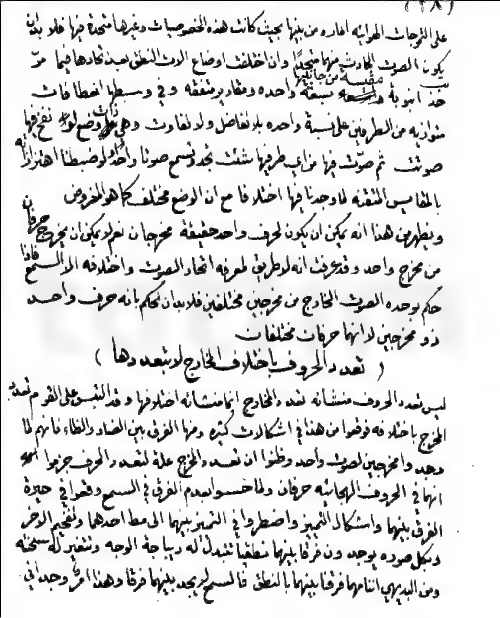 (٢٨)
على التموجات الهوائية اماره ومن بينها بحيث كانت هذه الخصوصيات وغيرها متحدة فيها فلابد ان
يكون الصوت الحادث منها متحدا وان اختلف اوضاع الات النطق بعد اتحادها فيما مر
خذ انبوبة بنسبة واحده ومقادير متفقه وفي وسطها انعطافات
متوازيه من الطرفين على نسبة واحده بلا تفاضل ولا تفاوت وهي على وضع لو نفخ فيها
صوتت ثم صوّت فيها من اي طرفيها شئت تجد وتسمع صوتا واحدا ولو ضبطنا اهتزازاته
بالمقاييس المتقنه لما وجدنا فيها اختلافا مع ان الوضع مختلف كما هو المفروض
ويظهر من هذا انه يمكن ان يكون لحرف واحد حقيقة مخرجان نعم لا يمكن ان يخرج حرفان
من مخرج واحد وقد عرفت انه لا طريق لمعرفه اتحاد الصوت واختلافه الا السمع فاذا
حكم بوحده الصوت الخارج من مخرجين مختلفين فلابد ان نحكم بانه حرف واحد
ذو مخرجين لا انها حرفان مختلفان
( تعدد الحروف باختلاف المخارج لا بتعددها )
ليس تعدد الحروف منشأنه تعدد المخارج انما منشأنه اختلافها وقد التبس على القوم تعدد
المخرج باختلافه فوقعوا من هذا في اشكالات كثيره ومنها الفرق بين الضاد والظاء فانهم لما
وجدوا مخرجين لصوت واحد وظنوا ان تعدد المخرج علة لتعدد الحرف جزموا
انها في الحروف الهجائيه حرفان ولما احسوا بعدم الفرق في السمع وقعوا في حيرة
الفرق بينهما واشكال التمييز واضطروا في التمييز بينهما الى مط احدهما وتفخيم الاخر
وبكل صوره يوجدون فرقا بينهما منطقيا تتبدل له ديباجة الوجه وتتغير له سحنته
ومن البديهي اننا مهما فرقنا بينهما بالنطق فالسمع لا يجد بينهما فرقا وهذا امر وجداني